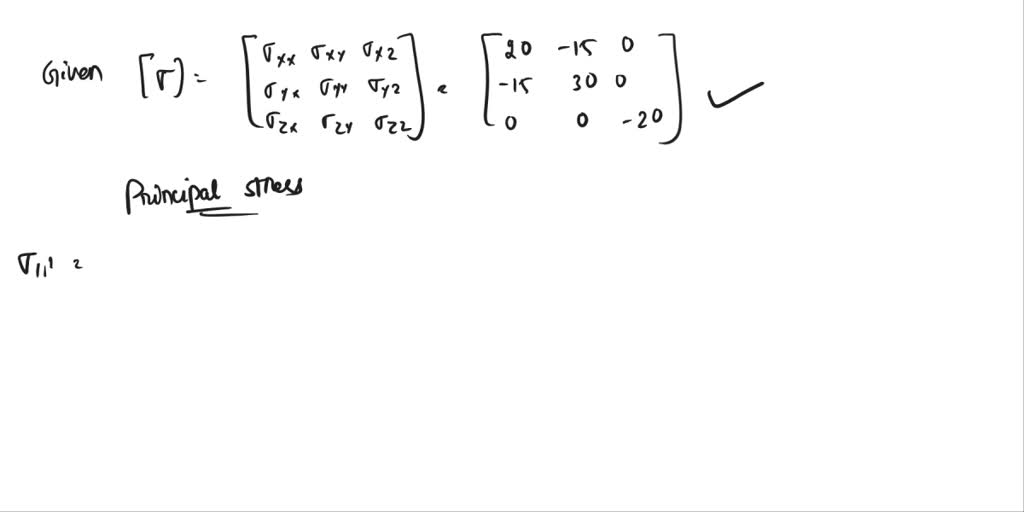 Given [σ] = [σxx σxy σxz
σyx σyy σyz
σzx σzy σzz] = [20 -15 0
-15 30 0
0 0 -20] ✓
Principal stress
σ11' =